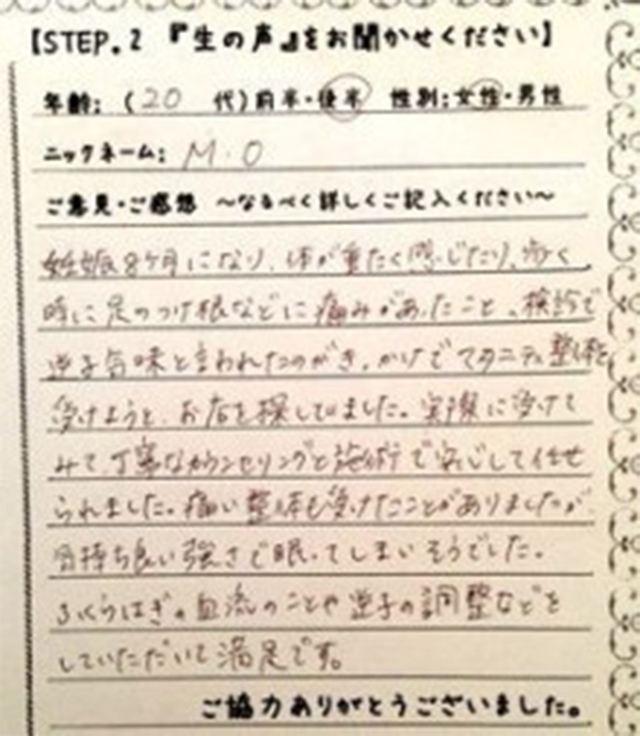 【STEP.2 『生の声』をお聞かせください】
年齢:(20 代)前半・後半 性別:女性・男性
ニックネーム: M.O
ご意見・ご感想 〜なるべく詳しくご記入ください〜
妊娠8ヶ月になり、体が重たく感じたり、歩く
時に足のつけ根などに痛みがあったこと、検診で
逆子気味と言われたのがきっかけでマタニティ整体を
受けようと、お店を探していました。実際に受けて
みて、丁寧なカウンセリングと施術で安心して任せ
られました。痛い整体も受けたことがありましたが、
気持ち良い強さで眠ってしまいそうでした。
ふくらはぎの血流のことや逆子の調整などを
していただいて満足です。
ご協力ありがとうございました。